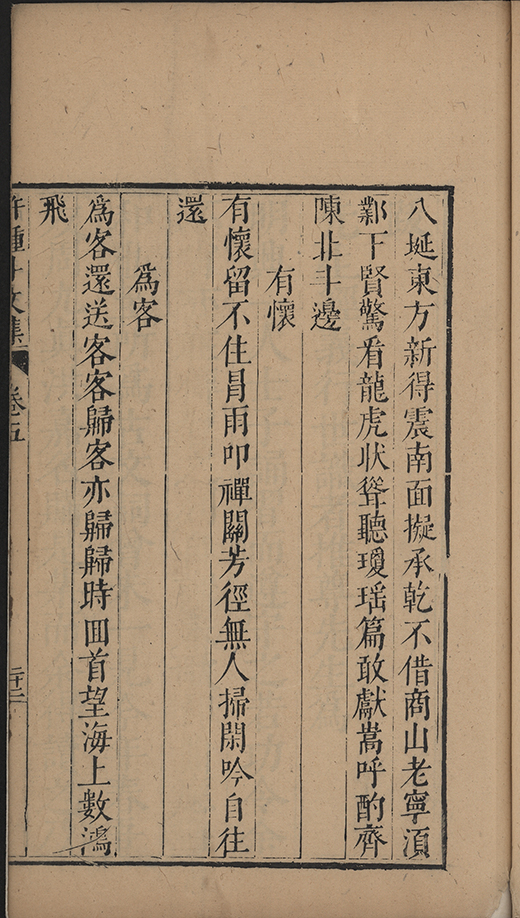 八埏東方新得震南面擬承乾不借商山老寧湏
鄴下賢驚看龍虎状聳聽瓊瑶篇敢獻嵩呼酌齊
陳北斗邊
有懷
有懷留不住冐雨叩禪關芳徑無人掃閑吟自往
還
為客
爲客還送客客歸客亦歸歸時囬首望海上數鴻
飛
許鍾斗文集
卷五
二十二